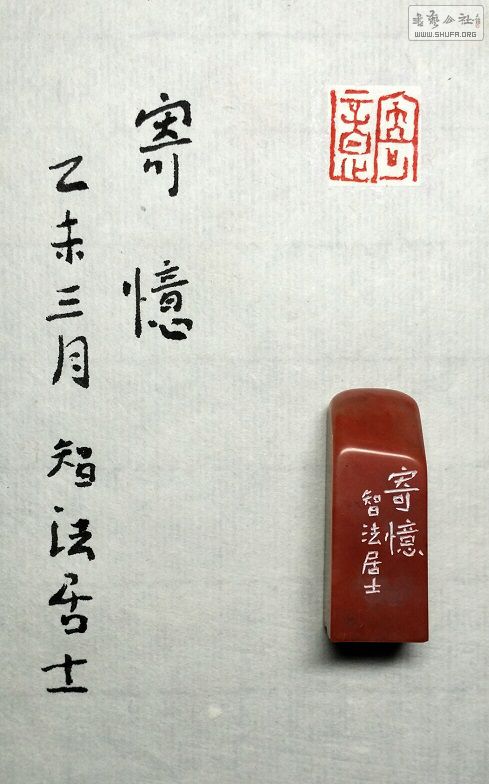 寄憶
乙未三月 智法居士
寄憶
寄憶
智法居士
書藝公社
WWW.SHUFA.ORG